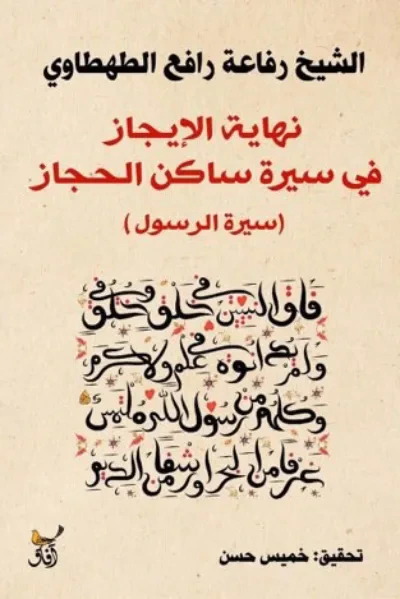 الشيخ رفاعة رافع الطهطاوي
نهاية الإيجاز
في سيرة ساكن الحجاز
(سيرة الرسول)
فاق النبيين في خلق وفي خلق
ولم يدانوه في علم ولا كرم
وكلهم من رسول الله ملتمس
غرفا من البحر أو رشفا من الديم
تحقيق: خميس حسن
آفاق